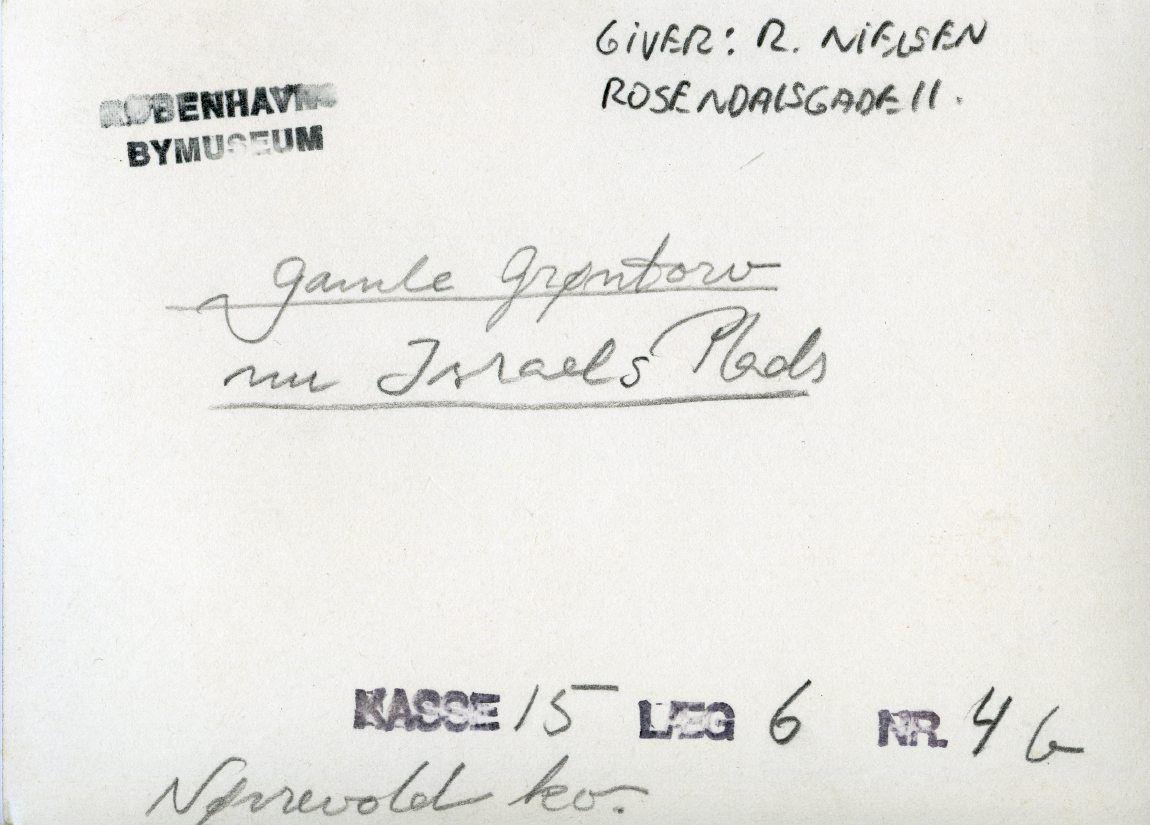 GIVER: R. NIELSEN
ROSENDALSGADE 11.
KØBENHAVNS
BYMUSEUM
gamle Grøntorv
nu Israels Plads
KASSE 15 LÆG 6 NR. 4 b
Nørrevold kv.